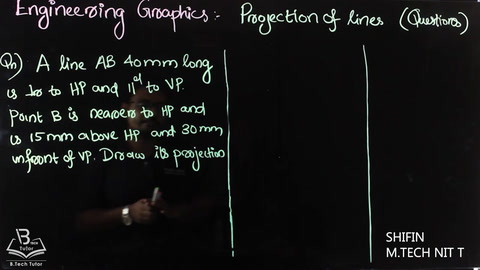 Engineering Graphics:- Projection of lines (Questions)
Qn) A line AB 40mm long
is ⊥r to HP and ||el to VP.
Point B is nearer to HP and
is 15mm above HP and 30mm
infront of VP. Draw its projection
B
TECH
Tutor
B.Tech Tutor
SHIFIN
M.TECH NIT T